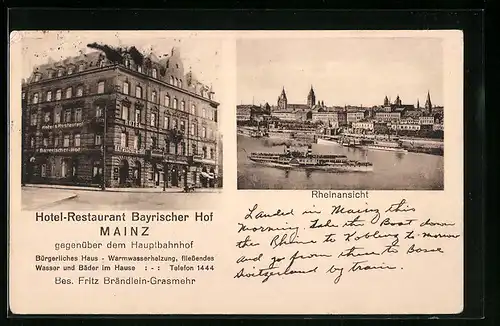 Hotel-Restaurant
Bayrischer Hof
Hotel-Restaurant Bayrischer Hof
MAINZ
gegenüber dem Hauptbahnhof
Bürgerliches Haus - Warmwasserheizung, fließendes
Wasser und Bäder im Hause :-: Telefon 1444
Bes. Fritz Brändlein-Grasmehr
Rheinansicht
Landed in Mainz this
morning. Take the Boat down
the Rhine to Koblenz to-morrow
and go from there to Basse
Switzerland by train.